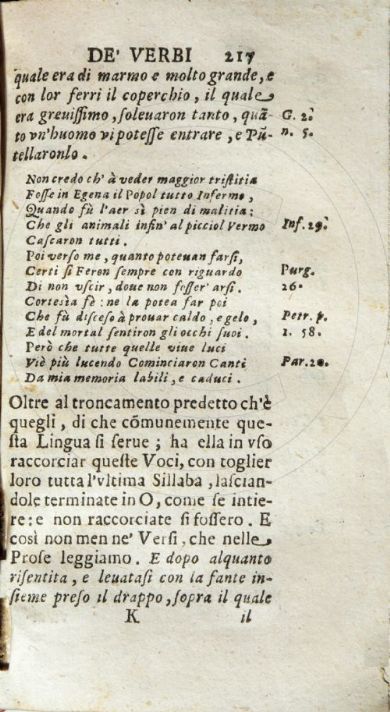 DE' VERBI 217
quale era di marmo e molto grande, e
con lor ferri il coperchio, il quale
era grevissimo, solevaron tanto, quã- G. 2.
to vn'huomo vi potesse entrare, e Pũ- n. 5.
tellaronlo.
Non credo ch' à veder maggior tristitia
Fosse in Egena il Popol tutto Infermo,
Quando fù l'aer sì pien di malitia:
Che gli animali infin' al picciol Vermo Inf. 29.
Cascaron tutti.
Poi verso me, quanto poteuan farsi,
Certi si Feron sempre con riguardo Purg.
Di non vscir, doue non fosser' arsi. 26.
Cortesìa fè: ne la potea far poi
Che fù disceso à prouar caldo, e gelo, Petr. p.
E del mortal sentiron gli occhi suoi. 1. 58.
Però che tutte quelle viue luci
Viè più lucendo Cominciaron Canti Par. 20.
Da mia memoria labili, e caduci.
Oltre al troncamento predetto ch'è
quegli, di che cõmunemente que-
sta Lingua si serue; ha ella in vso
raccorciar queste Voci, con toglier
loro tutta l'vltima Sillaba, lascian-
dole terminate in O, come se intie-
re: e non raccorciate si fossero. E
così non men ne' Versi, che nelle
Prose leggiamo. E dopo alquanto
risentita, e leuatasi con la fante in-
sieme preso il drappo, sopra il quale
K il